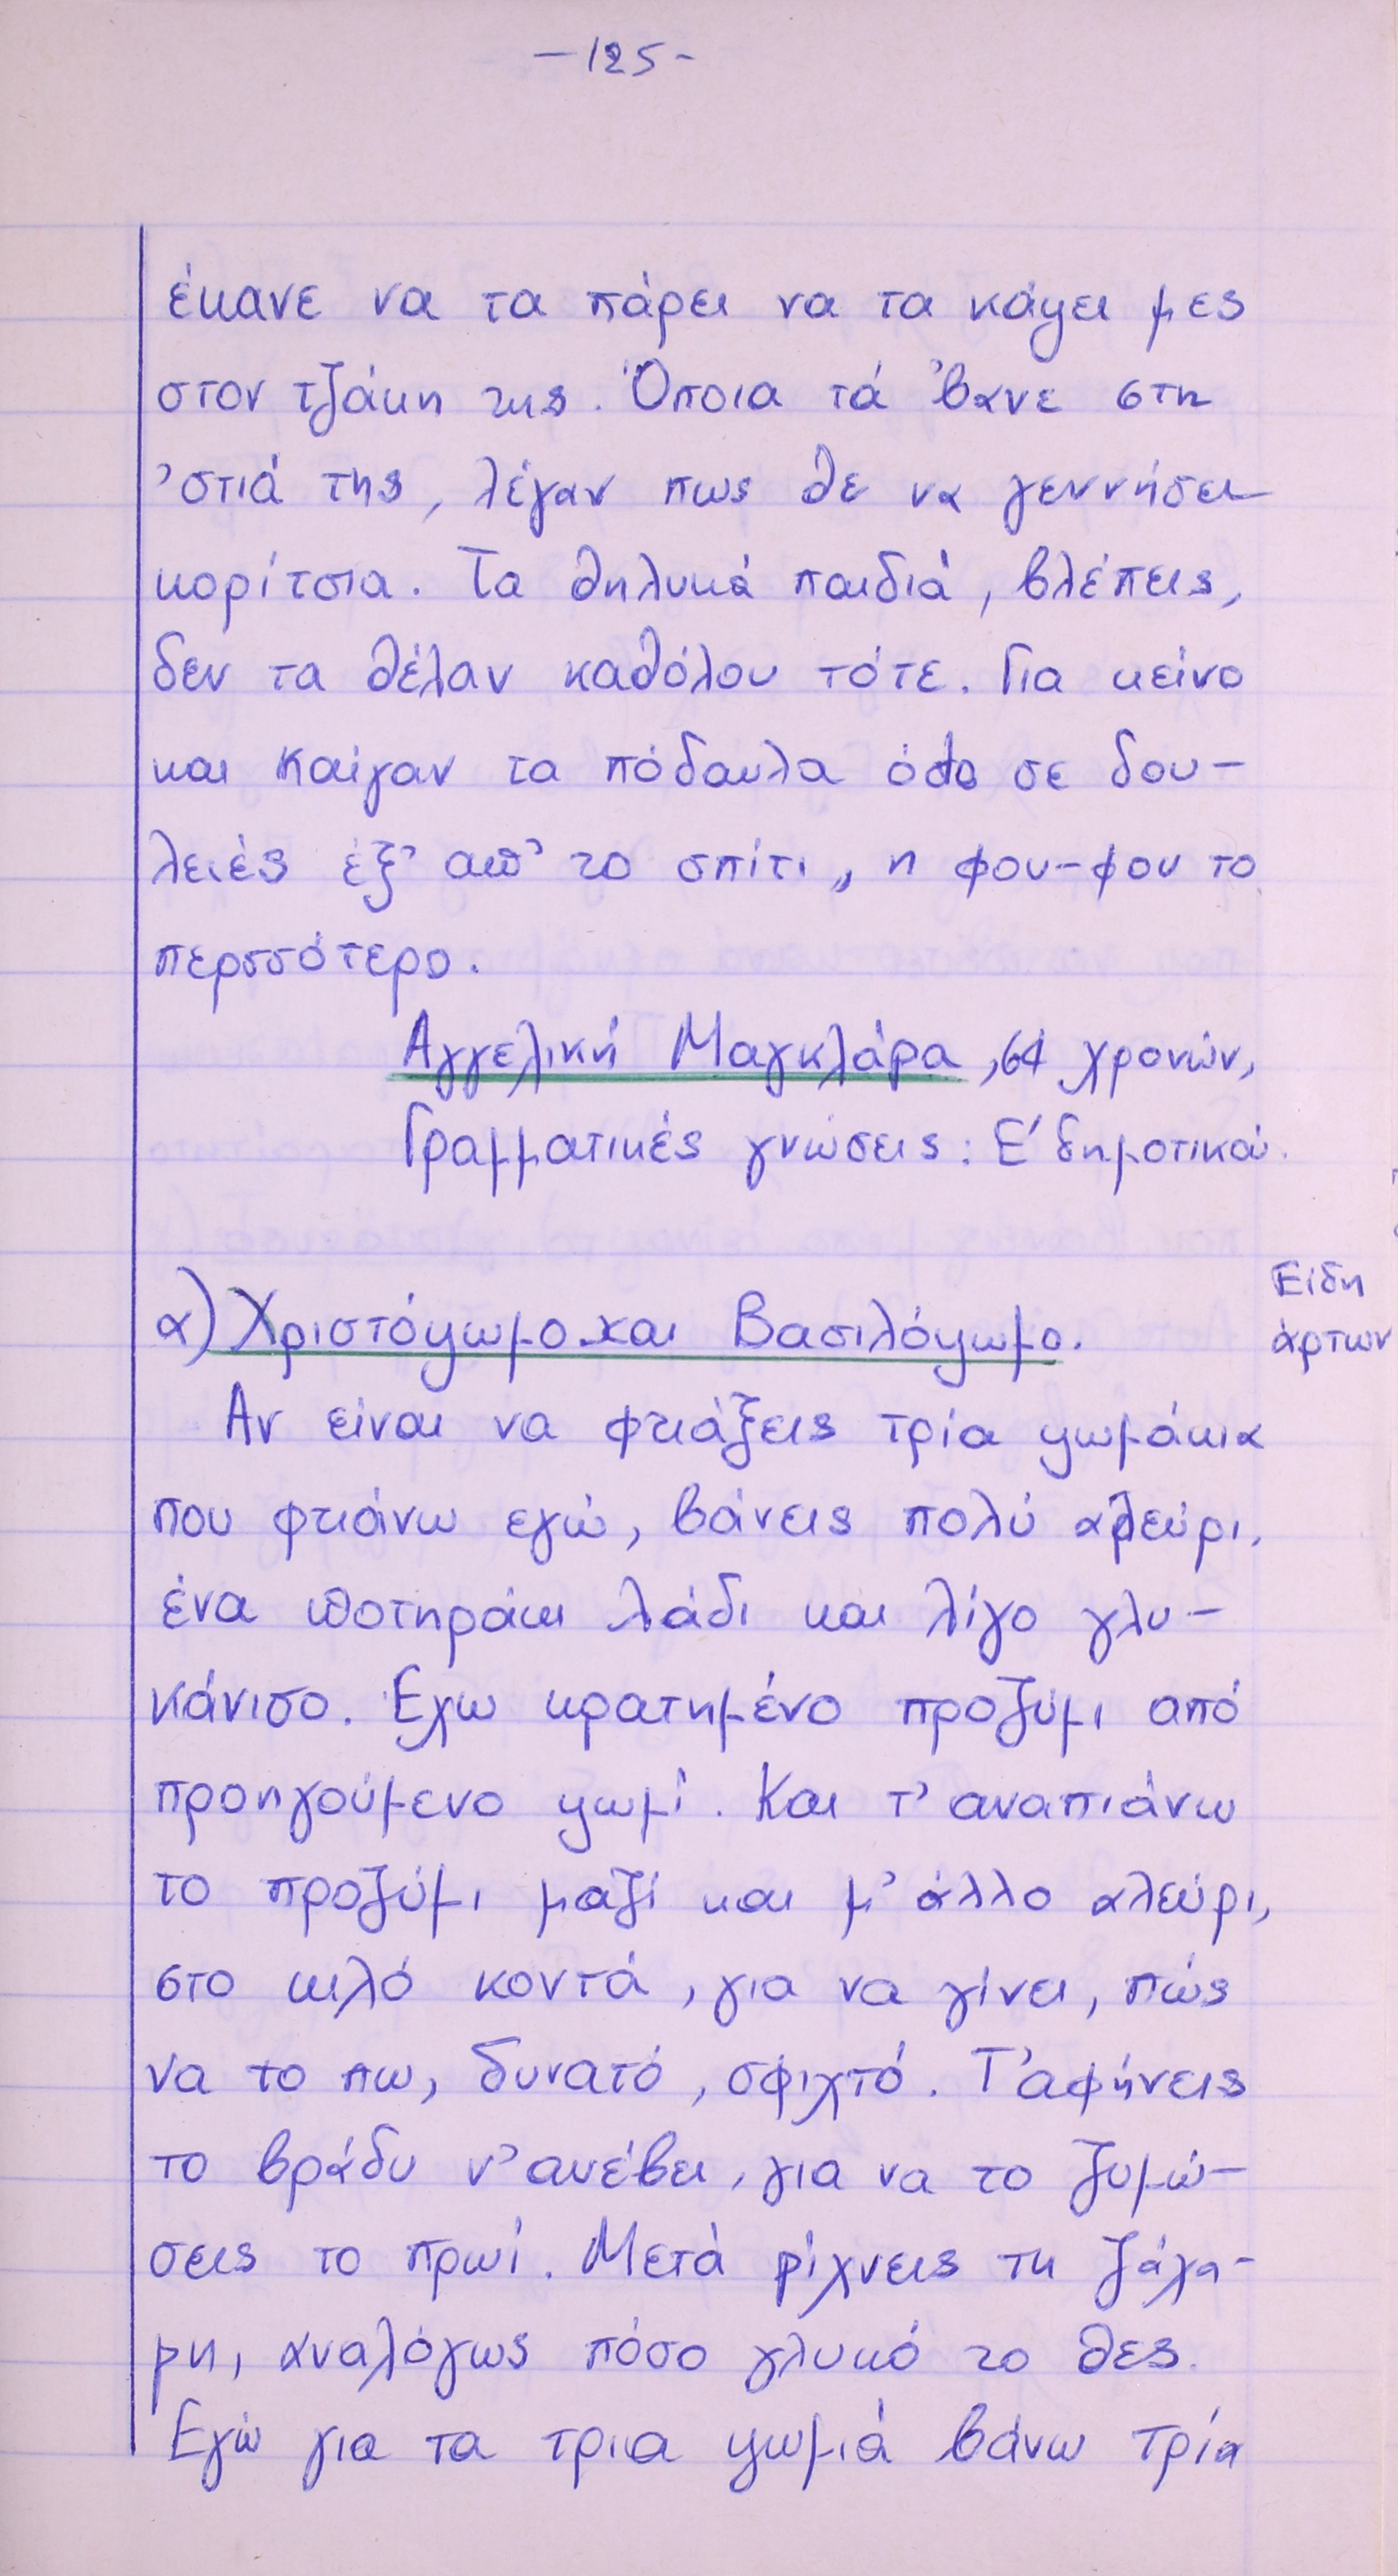 -125-
έκανε να τα πάρει να τα κάψει μες
στον τζάκη της. Όποια τά 'βανε στη
'στιά της, λέγαν πως θε να γεννήσει
κορίτσια. Τα θηλυκά παιδιά, βλέπεις,
δεν τα θέλαν καθόλου τότε. Για κείνο
και καίγαν τα πόδαυλα όξω σε δου-
λειές έξ' απ' το σπίτι, η φου-φου το
περσσότερο.
Αγγελική Μαγκλάρα, 64 χρονών,
Γραμματικές γνώσεις: Ε' δημοτικού.
Είδη
άρτων
α) Χριστόψωμο και Βασιλόψωμο.
Αν είναι να φτιάξεις τρία ψωμάκια
που φτιάνω εγώ, βάνεις πολύ αλεύρι,
ένα ποτηράκι λάδι και λίγο γλυ-
κάνισο. Έχω κρατημένο προζύμι από
προηγούμενο ψωμί. Και τ' αναπιάνω
το προζύμι μαζί και μ' άλλο αλεύρι,
στο κιλό κοντά, για να γίνει, πώς
να το πω, δυνατό, σφιχτό. Τ' αφήνεις
το βράδυ ν' ανέβει, για να το ζυμώ-
σεις το πρωί. Μετά ρίχνεις τη ζάχα-
ρη, αναλόγως πόσο γλυκό το θες.
Εγώ για τα τρια ψωμιά βάνω τρία